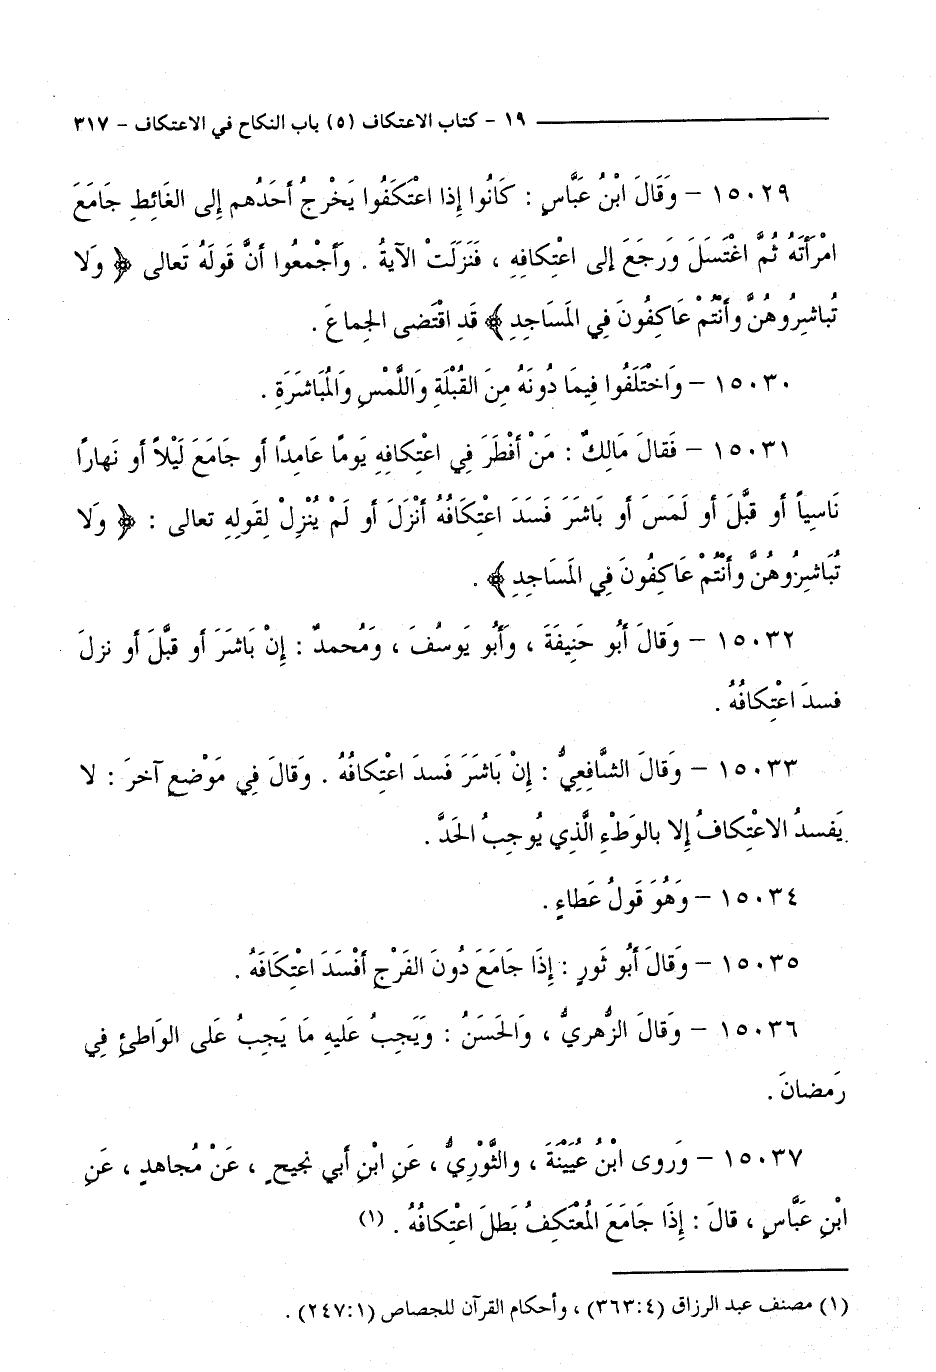 ١٩ - كتاب الاعتكاف (٥) باب النكاح في الاعتكاف - ٣١٧
١٥٠٢٩ - وَقَالَ ابْنُ عَبَّاسٍ : كَانُوا إِذا اعْتَكَفُوا يَخْرجُ أَحَدُهم إِلى الغَائِطِ جَامَعَ
امْرَأَتَهُ ثُمَّ اغْتَسَلَ وَرَجَعَ إِلى اعْتِكافِهِ ، فَنَزَلَتْ الآيةُ . وَأَجْمعُوا أَنَّ قَولَهُ تَعالى ﴿ وَلا
تُباشِرُوهُنَّ وَأَنْتُمْ عَاكِفُونَ فِي المَسَاجِدِ ﴾ قَدِ اقْتَضى الجِماعَ .
١٥٠٣٠ - وَاخْتَلَفُوا فِيمَا دُونَهُ مِنَ القُبْلَةِ وَاللَّمْسِ وَالمُبَاشَرَةِ .
١٥٠٣١ - فَقالَ مَالِكٌ : مَنْ أَفْطَرَ فِي اعْتِكافِهِ يَومًا عَامِدًا أَو جَامَعَ لَيْلاً أَو نَهاراً
نَاسِياً أَو قبَّلَ أَو لَمَسَ أَو بَاشَرَ فَسدَ اعْتِكَافُهُ أَنْزَلَ أَو لَمْ يُنْزِلْ لِقَولِهِ تعالى : ﴿ وَلا
تُبَاشِرُوهُنَّ وَأَنْتُمْ عَاكِفُونَ فِي المَسَاجِدِ ﴾ .
١٥٠٣٢ - وَقالَ أَبُو حَنِيفَةَ ، وَأَبُو يَوسُفَ ، وَمُحمدٌ : إِنْ بَاشَرَ أَو قبَّلَ أَو نزلَ
فسدَ اعْتِكافُهُ .
١٥٠٣٣ - وَقالَ الشَّافِعِيُّ : إِنْ بَاشَرَ فَسدَ اعْتِكافُهُ . وَقالَ فِي مَوْضعٍ آخرَ : لا
يَفسدُ الاعْتِكافُ إِلا بالوَطْءِ الَّذِي يُوجِبُ الحَدَّ .
١٥٠٣٤ - وَهُوَ قَولُ عَطاءٍ .
١٥٠٣٥ - وَقالَ أَبُو ثَورٍ : إِذَا جَامَعَ دُونَ الفَرْجِ أَفْسَدَ اعْتِكَافَهُ .
١٥٠٣٦ - وَقالَ الزُّهريُّ ، وَالحَسَنُ : وَيَجِبُ عَليهِ مَا يَجِبُ عَلى الوَاطئِ فِي
رَمضانَ .
١٥٠٣٧ - وَروى ابْنُ عُيَيْنَةَ ، والثَّوْرِيُّ ، عَنِ ابْنِ أَبي نجيحٍ ، عَنْ مُجاهدٍ ، عَنِ
ابْنِ عَبَّاسٍ ، قالَ : إِذَا جَامَعَ المُعْتَكِفُ بَطلَ اعْتِكافُهُ . (١)
(١) مصنف عبد الرزاق (٤:٣٦٣) ، وأحكام القرآن للجصاص (١:٢٤٧) .